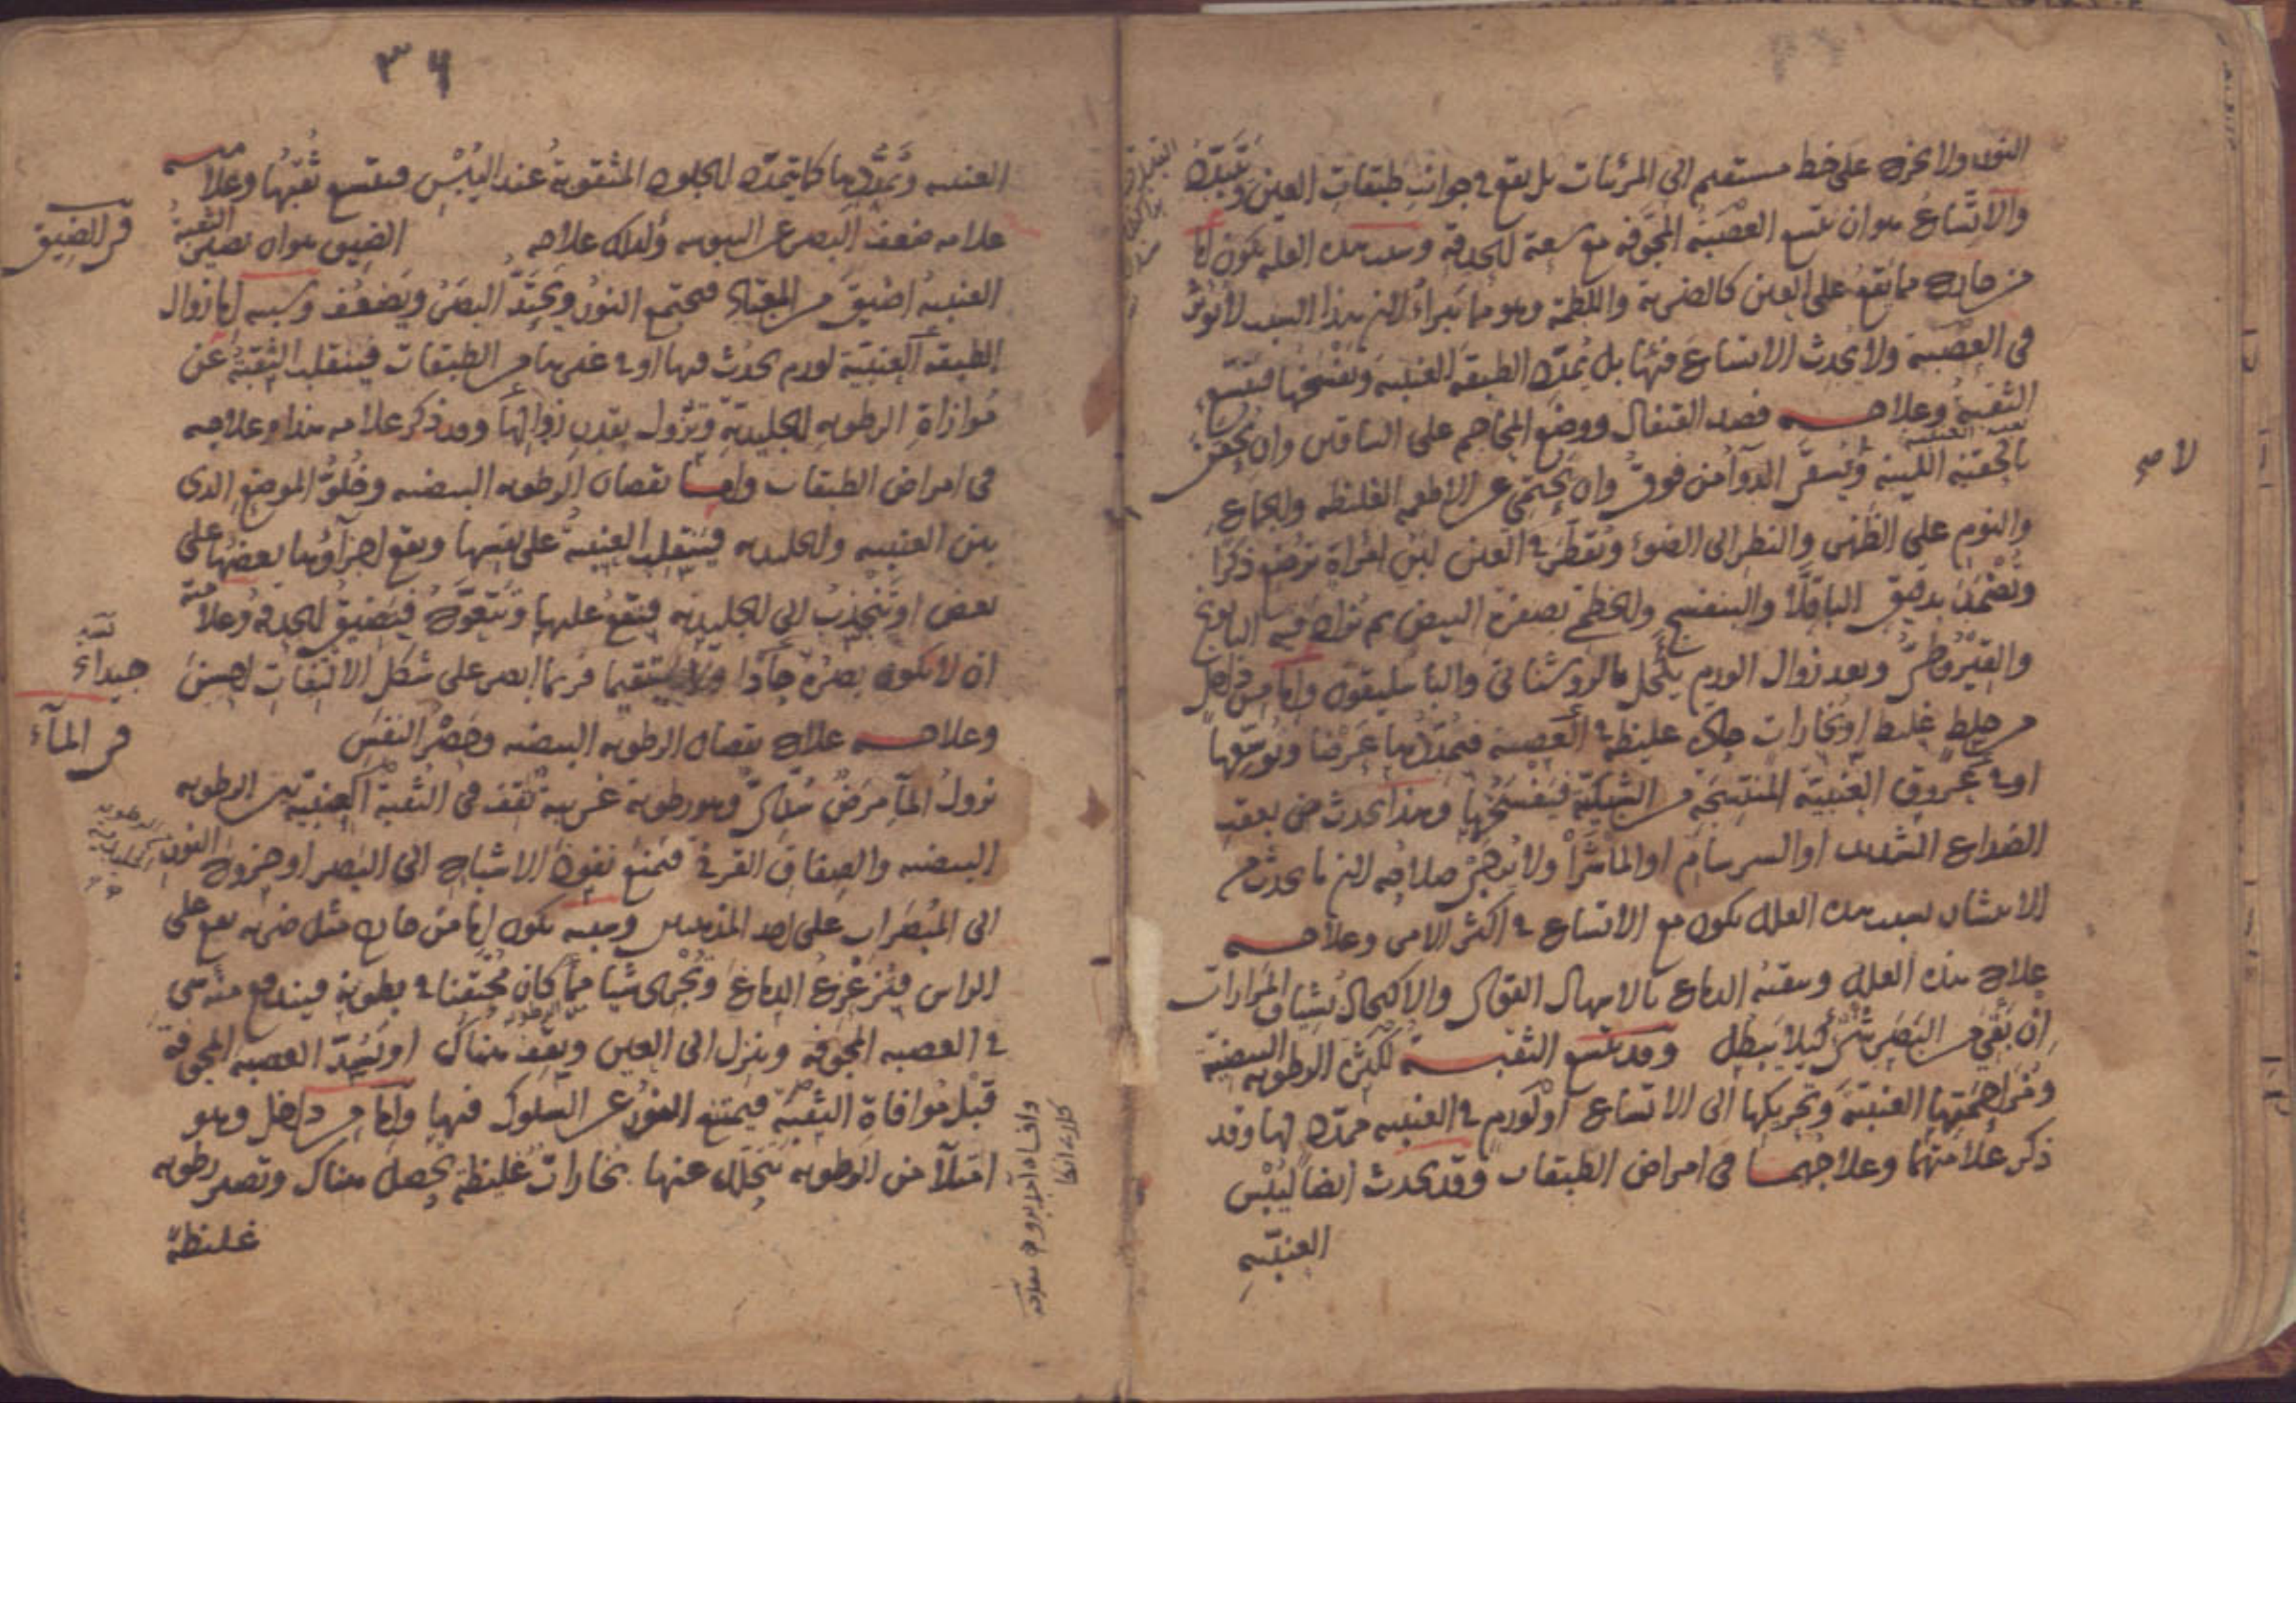 النور ولا يخرج على خط مستقيم الى المرئيات بل يقع في جوانب طبقات العين ويتبدد
والاتساع هو ان تتسع العصبة المجوفة مع سعة الحدقة وسبب هذه العلة يكون اما
من خارج مما يقع على العين كالضربة واللطمة وهو مما يبرأ لان هذا السبب لا يؤثر
في العصبة ولا يحدث الاتساع فيها بل يمدد الطبقة العنبية ويفسخها فتتسع
الثقبة وعلاجه فصد القيفال ووضع المحاجم على الساقين وان يحقن
بالحقنة اللينة ويسقى الدوآ من فوق وان يحتمي عن الاطعمة الغليظة والجماع
والنوم على الظهر والنظر الى الضوء ويقطر في العين لبن امرأة ترضع ذكرا
ويضمد بدقيق الباقلا والبنفسج والخطمي بصفرة البيض ثم يزاد فيه البابونج
والقيروطي وبعد زوال الورم يكحل بالروشنائي والباسليقون واما من داخل
من خلط غليظ او بخارات غليظة في العصبة فيمددها عرضا ويوسعها
او في عروق العنبية المنتسجة من الشبكية فيفسخها وهذا يحدث بعقب
الصداع الشديد او السرسام او الماشرا ولا يرجى صلاحه لان ما يحدث من
الانتشار بسبب هذه العلل يكون مع الاتساع في اكثر الامر وعلاجه
علاج هذه العلل وتنقية الدماغ بالاسهال القوي والاكتحال بشياف المرارات
ان بقي من البصر شئ كيلا يبطل وقد تتسع الثقبة لكثرة الرطوبة البيضية
ومزاحمتها العنبية وتحريكها الى الاتساع او لورم في العنبية ممدد لها وقد
ذكر علامتهما وعلاجهما في امراض الطبقات وقد يحدث ايضا ليبس
العنبية
لا صح
٣٦
العنبية وتمددها كما يتمدد الجلود المثقوبة عند اليبس فتتسع ثقبها وعلامته
علامة ضعف البصر عن اليبوسة وكذلك علاجه الضيق هو ان تصير الثقبة
العنبية اضيق من المعتاد فيجتمع النور ويحتد البصر ويضعف وسببه اما زوال
الطبقة العنبية لورم يحدث فيها او في غيرها من الطبقات فينقلب الثقبة عن
موازاة الرطوبة الجليدية وتزول بقدر زوالها وقد ذكر علامة هذا وعلاجه
في امراض الطبقات واما نقصان الرطوبة البيضية وخلو الموضع الذي
بين العنبية والجليدية فينقلب العنبية على نفسها ويقع اجزآؤها بعضها على
بعض او تنجذب الى الجليدية فتقع عليها وتتعوج فيضيق الحدقة وعلامته
ان لا يكون بصره جادا ولا مستقيما فربما ابصر على شكل الالتفات احسن
وعلاجه علاج نقصان الرطوبة البيضية وحصر النفس
نزول المآ مرض سدي وهو رطوبة غريبة تقف في الثقبة العنبية بين الرطوبة
البيضية والصفاق القرني فتمنع نفوذ الاشباح الى البصر او خروج النور
الى المبصرات على احد المذهبين وسببه يكون اما من خارج مثل ضربة يقع على
الراس فيزعزع الدماغ ويجري شيا مما كان محتقنا في بطونه فيندفع منه شئ
في العصبة المجوفة وينزل الى العين ويقف هناك او يسد العصبة المجوفة
قبل موافاة الثقبة فيمتنع النور عن السلوك فيها واما من داخل وهو
امتلآ من الرطوبة تتحلل عنها بخارات غليظة يحصل هناك وتصير رطوبة
غليظة
في الضيق
في المآء